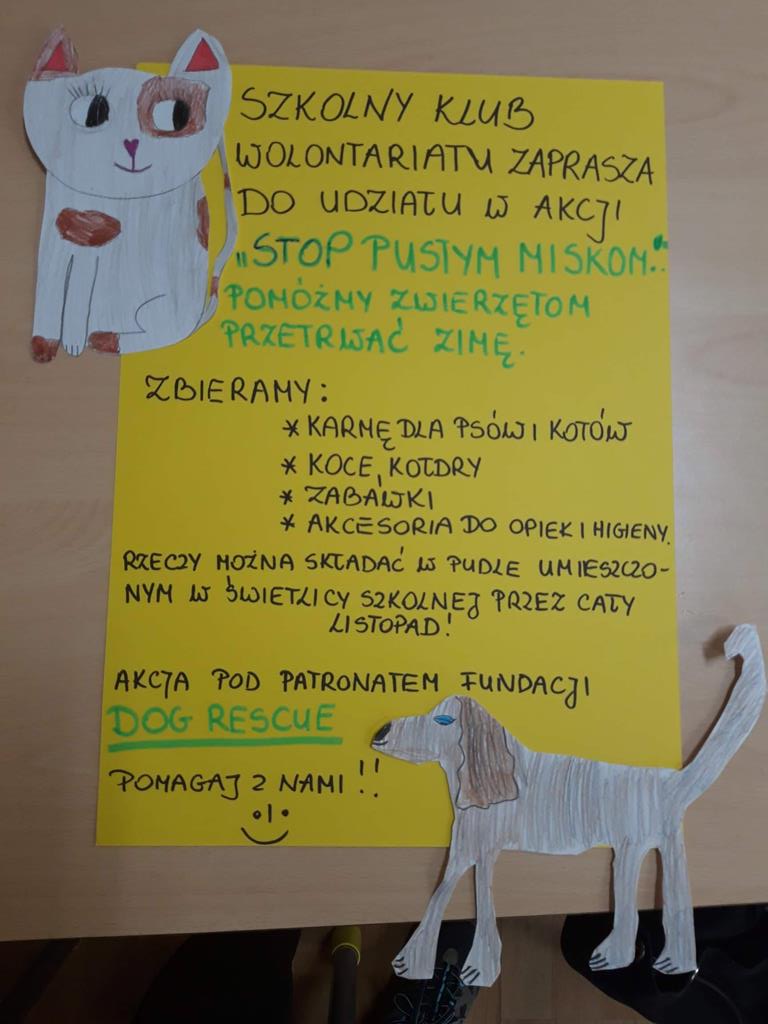 SZKOLNY KLUB
WOLONTARIATU ZAPRASZA
DO UDZIAŁU W AKCJI
„STOP PUSTYM MISKOM."
POMÓŻMY ZWIERZĘTOM
PRZETRWAĆ ZIMĘ.
ZBIERAMY:
* KARMĘ DLA PSÓW I KOTÓW
* KOCE, KOŁDRY
* ZABAWKI
* AKCESORIA DO OPIEKI HIGIENY.
RZECZY MOŻNA SKŁADAĆ W PUDLE UMIESZCZO-
NYM W ŚWIETLICY SZKOLNEJ PRZEZ CAŁY
LISTOPAD!
AKCJA POD PATRONATEM FUNDACJI
DOG RESCUE
POMAGAJ Z NAMI!!